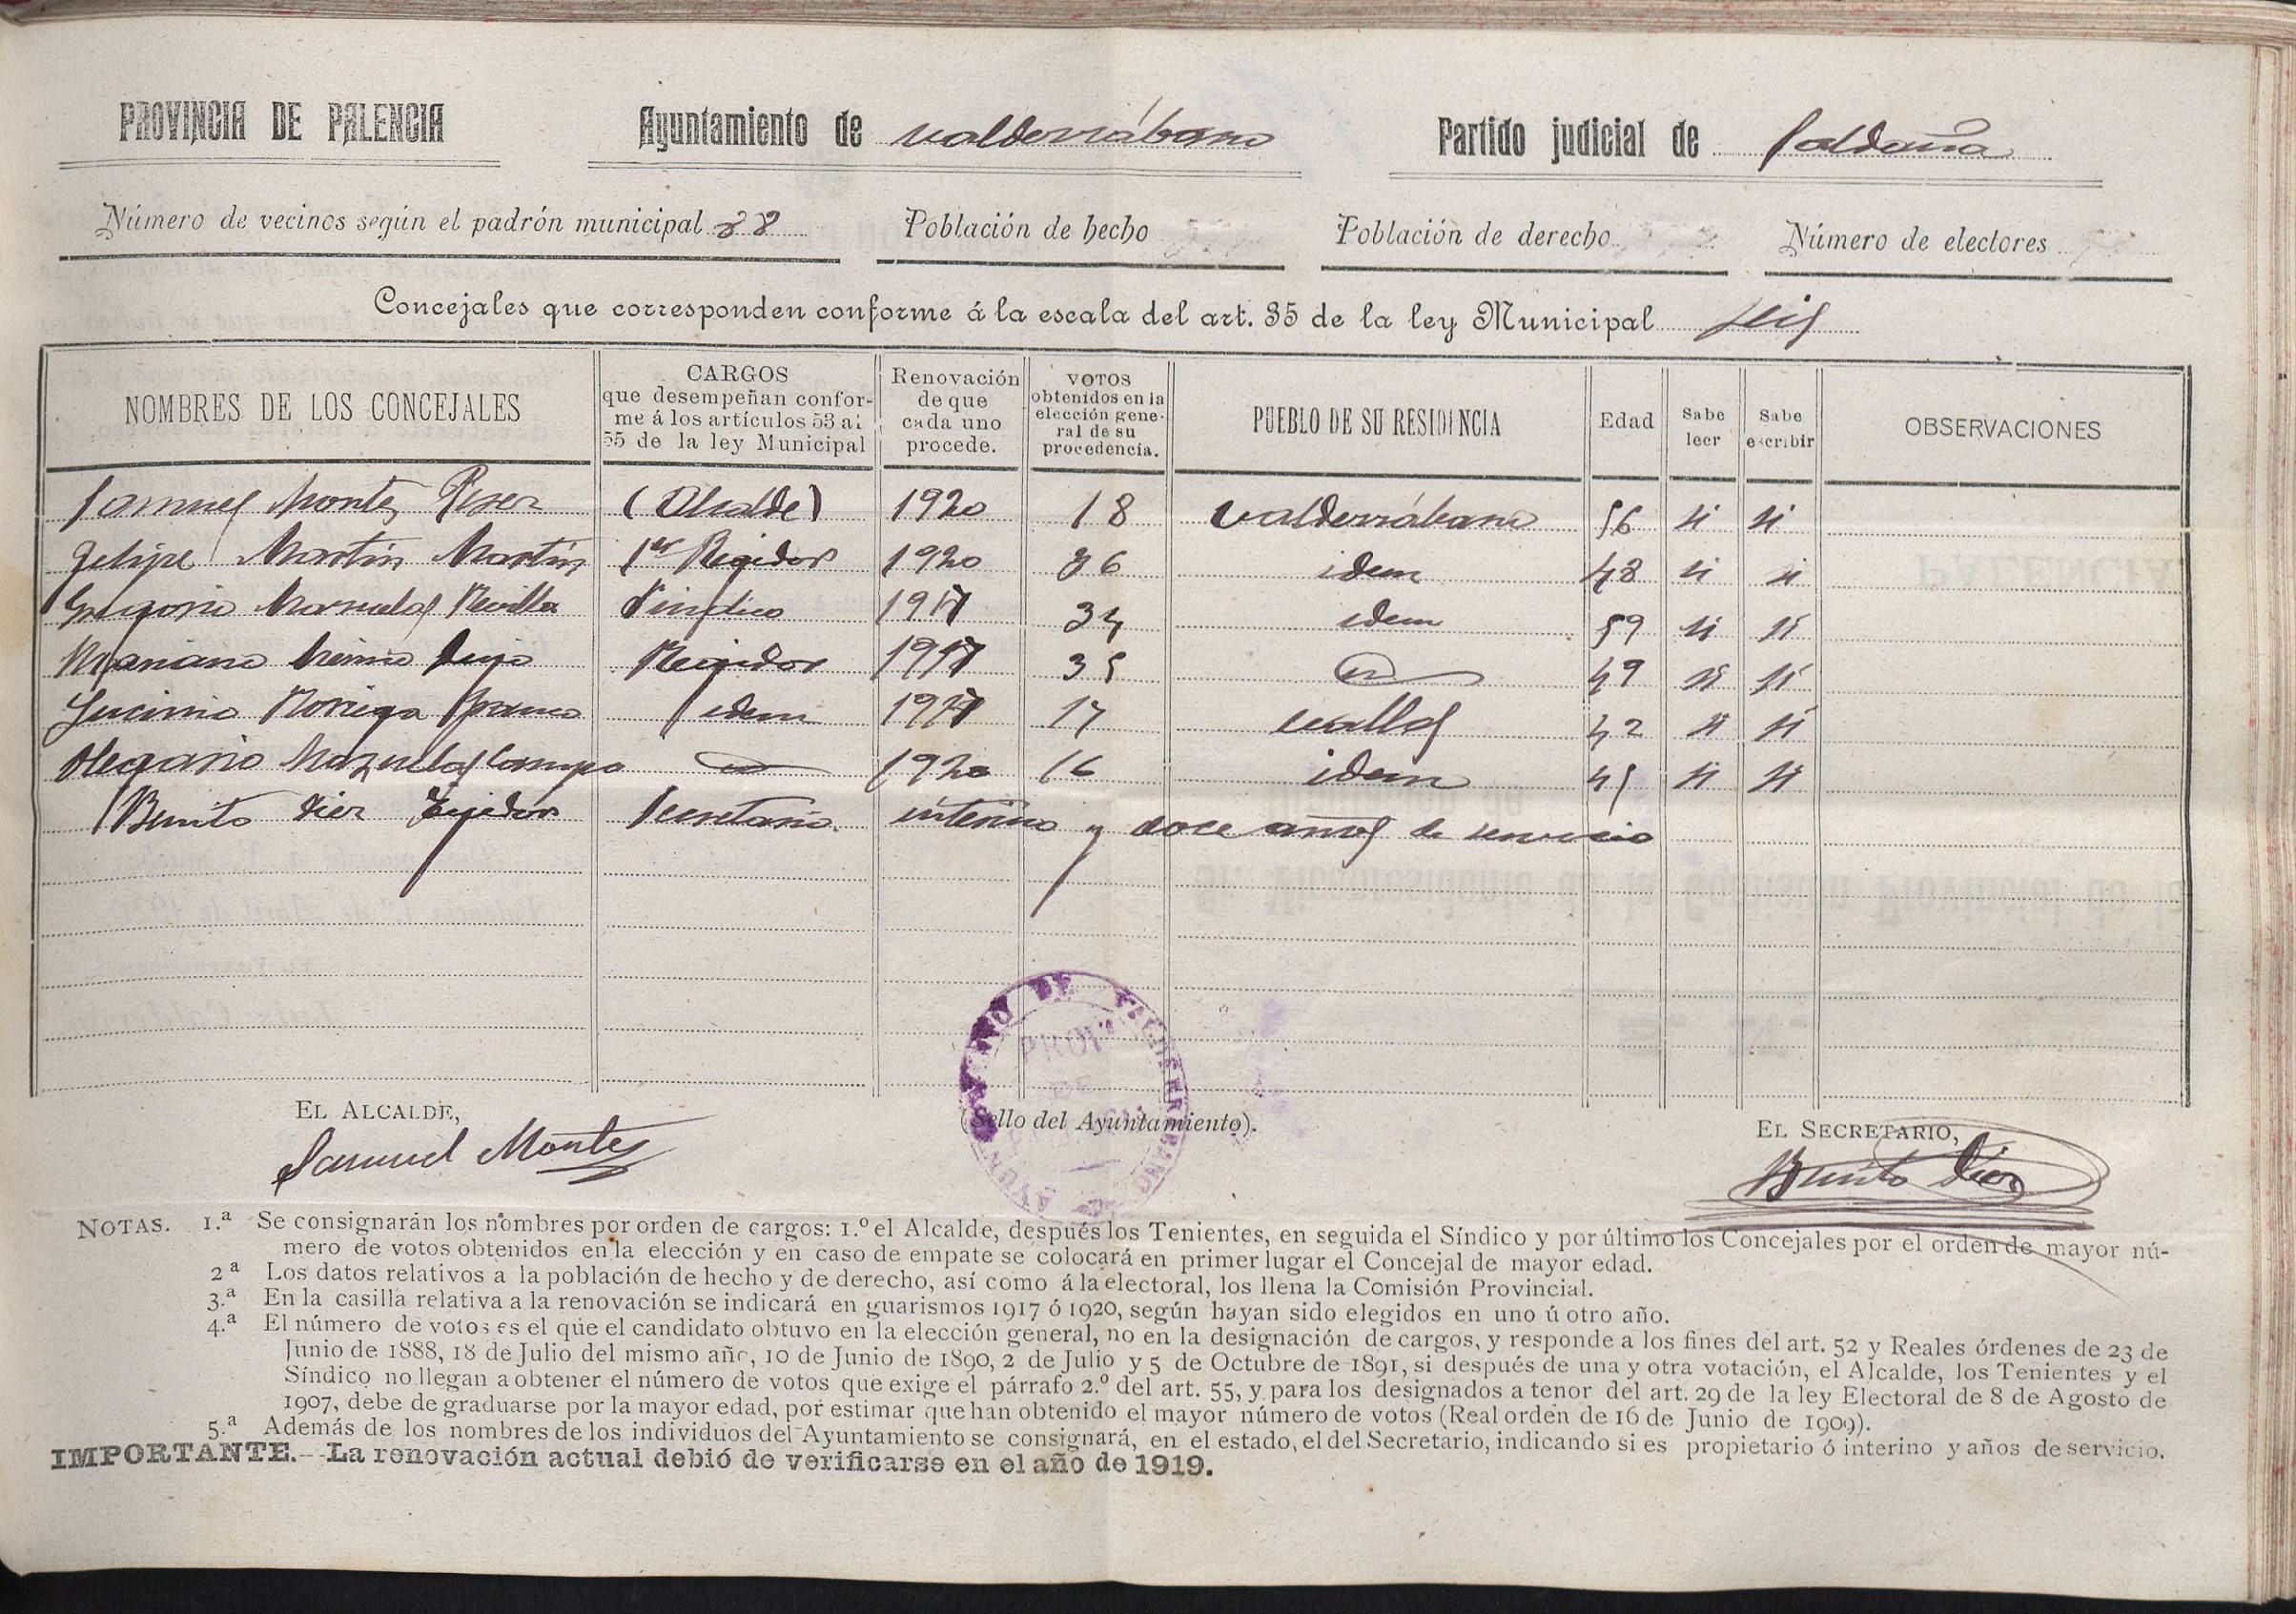 PROVINCIA DE PALENCIA Ayuntamiento de Valderrábano Partido judicial de Saldaña
Número de vecinos según el padrón municipal 88 Población de hecho Población de derecho Número de electores
Concejales que corresponden conforme á la escala del art. 35 de la ley Municipal seis
NOMBRES DE LOS CONCEJALES
CARGOS
que desempeñan confor-
me á los artículos 53 al
55 de la ley Municipal
Renovación
de que
cada uno
procede.
VOTOS
obtenidos en la
elección gene-
ral de su
procedencia.
PUEBLO DE SU RESIDENCIA
Edad
Sabe
leer
Sabe
escribir
OBSERVACIONES
Samuel Montes (Alcalde) 1920 18 Valderrábano 56 si si
Felipe Martín Martín 1er Regidor 1920 36 idem 48 si si
Gregorio Mazuelas Revilla Sindico 1917 34 idem 59 si si
Mariano Merino Regidor 1917 35 49 si si
Noriega Franco idem 1917 17 Valles 42 si si
Olegario Mazuelas Campo 1920 16 idem 45 si si
Benito Diez Tejedor Secretario interino y doce años de servicio
AYUNTAMIENTO DE VALDERRABANO
PROVª
DE
EL ALCALDE,
Samuel Montes
(Sello del Ayuntamiento).
EL SECRETARIO,
Benito Diez
NOTAS. 1.ª Se consignarán los nombres por orden de cargos: 1.º el Alcalde, después los Tenientes, en seguida el Síndico y por último los Concejales por el orden de mayor nú-
mero de votos obtenidos en la elección y en caso de empate se colocará en primer lugar el Concejal de mayor edad.
2ª Los datos relativos a la población de hecho y de derecho, así como á la electoral, los llena la Comisión Provincial.
3.ª En la casilla relativa a la renovación se indicará en guarismos 1917 ó 1920, según hayan sido elegidos en uno ú otro año.
4.ª El número de votos es el que el candidato obtuvo en la elección general, no en la designación de cargos, y responde a los fines del art. 52 y Reales órdenes de 23 de
Junio de 1888, 18 de Julio del mismo año, 10 de Junio de 1890, 2 de Julio y 5 de Octubre de 1891, si después de una y otra votación, el Alcalde, los Tenientes y el
Síndico no llegan a obtener el número de votos que exige el párrafo 2.º del art. 55, y para los designados a tenor del art. 29 de la ley Electoral de 8 de Agosto de
1907, debe de graduarse por la mayor edad, por estimar que han obtenido el mayor número de votos (Real orden de 16 de Junio de 1909).
5.ª Además de los nombres de los individuos del Ayuntamiento se consignará, en el estado, el del Secretario, indicando si es propietario ó interino y años de servicio.
IMPORTANTE.--La renovación actual debió de verificarse en el año de 1919.